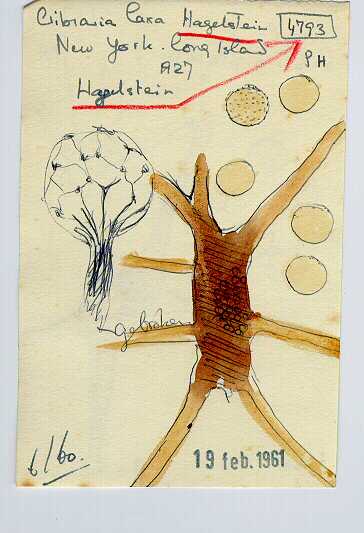 Cribraria laxa Hagelstein 4793
New York. Long Island SH
1927
Hagelstein
gebroken
6/60.
19 feb. 1961